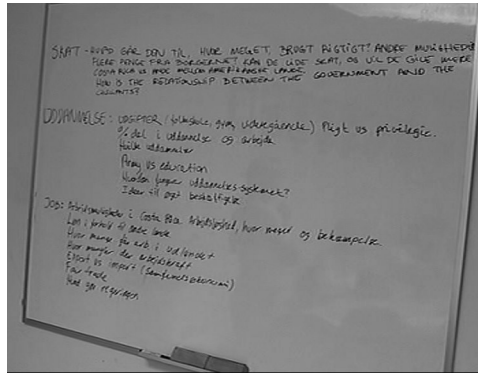 SKAT - HVAD GÅR DEN TIL, HVOR MEGET, BRUGT RIGTIGT? ANDRE MULIGHEDER
FLERE PENGE FRA BORGERNE? KAN DE LIDE SKAT, OG VIL DE GIVE MERE
COSTA RICA VS ANDRE MELLEMAMERIKANSKE LANDE.
HOW IS THE RELATIONSHIP BETWEEN THE GOVERNMENT AND THE
UDDANNELSE: UDGIFTER (folkeskole, gym, videregående) Pligt vs privilegie.
% del i uddannelse og arbejde
Hvilke uddannelser
Army vs education
Hvordan fungerer uddannelsessystemet?
Ideer til øget beskæftigelse
JOB: Arbejdsmuligheder i Costa Rica. Arbejdsløshed, hvor meget og bekæmpelse.
Løn i forhold til andre lande
Hvor mange får arb. i udlandet
Hvor mangler der arbejdskraft
Export vs import (samfundsøkonomi)
Fair trade
Hvad gør regeringen